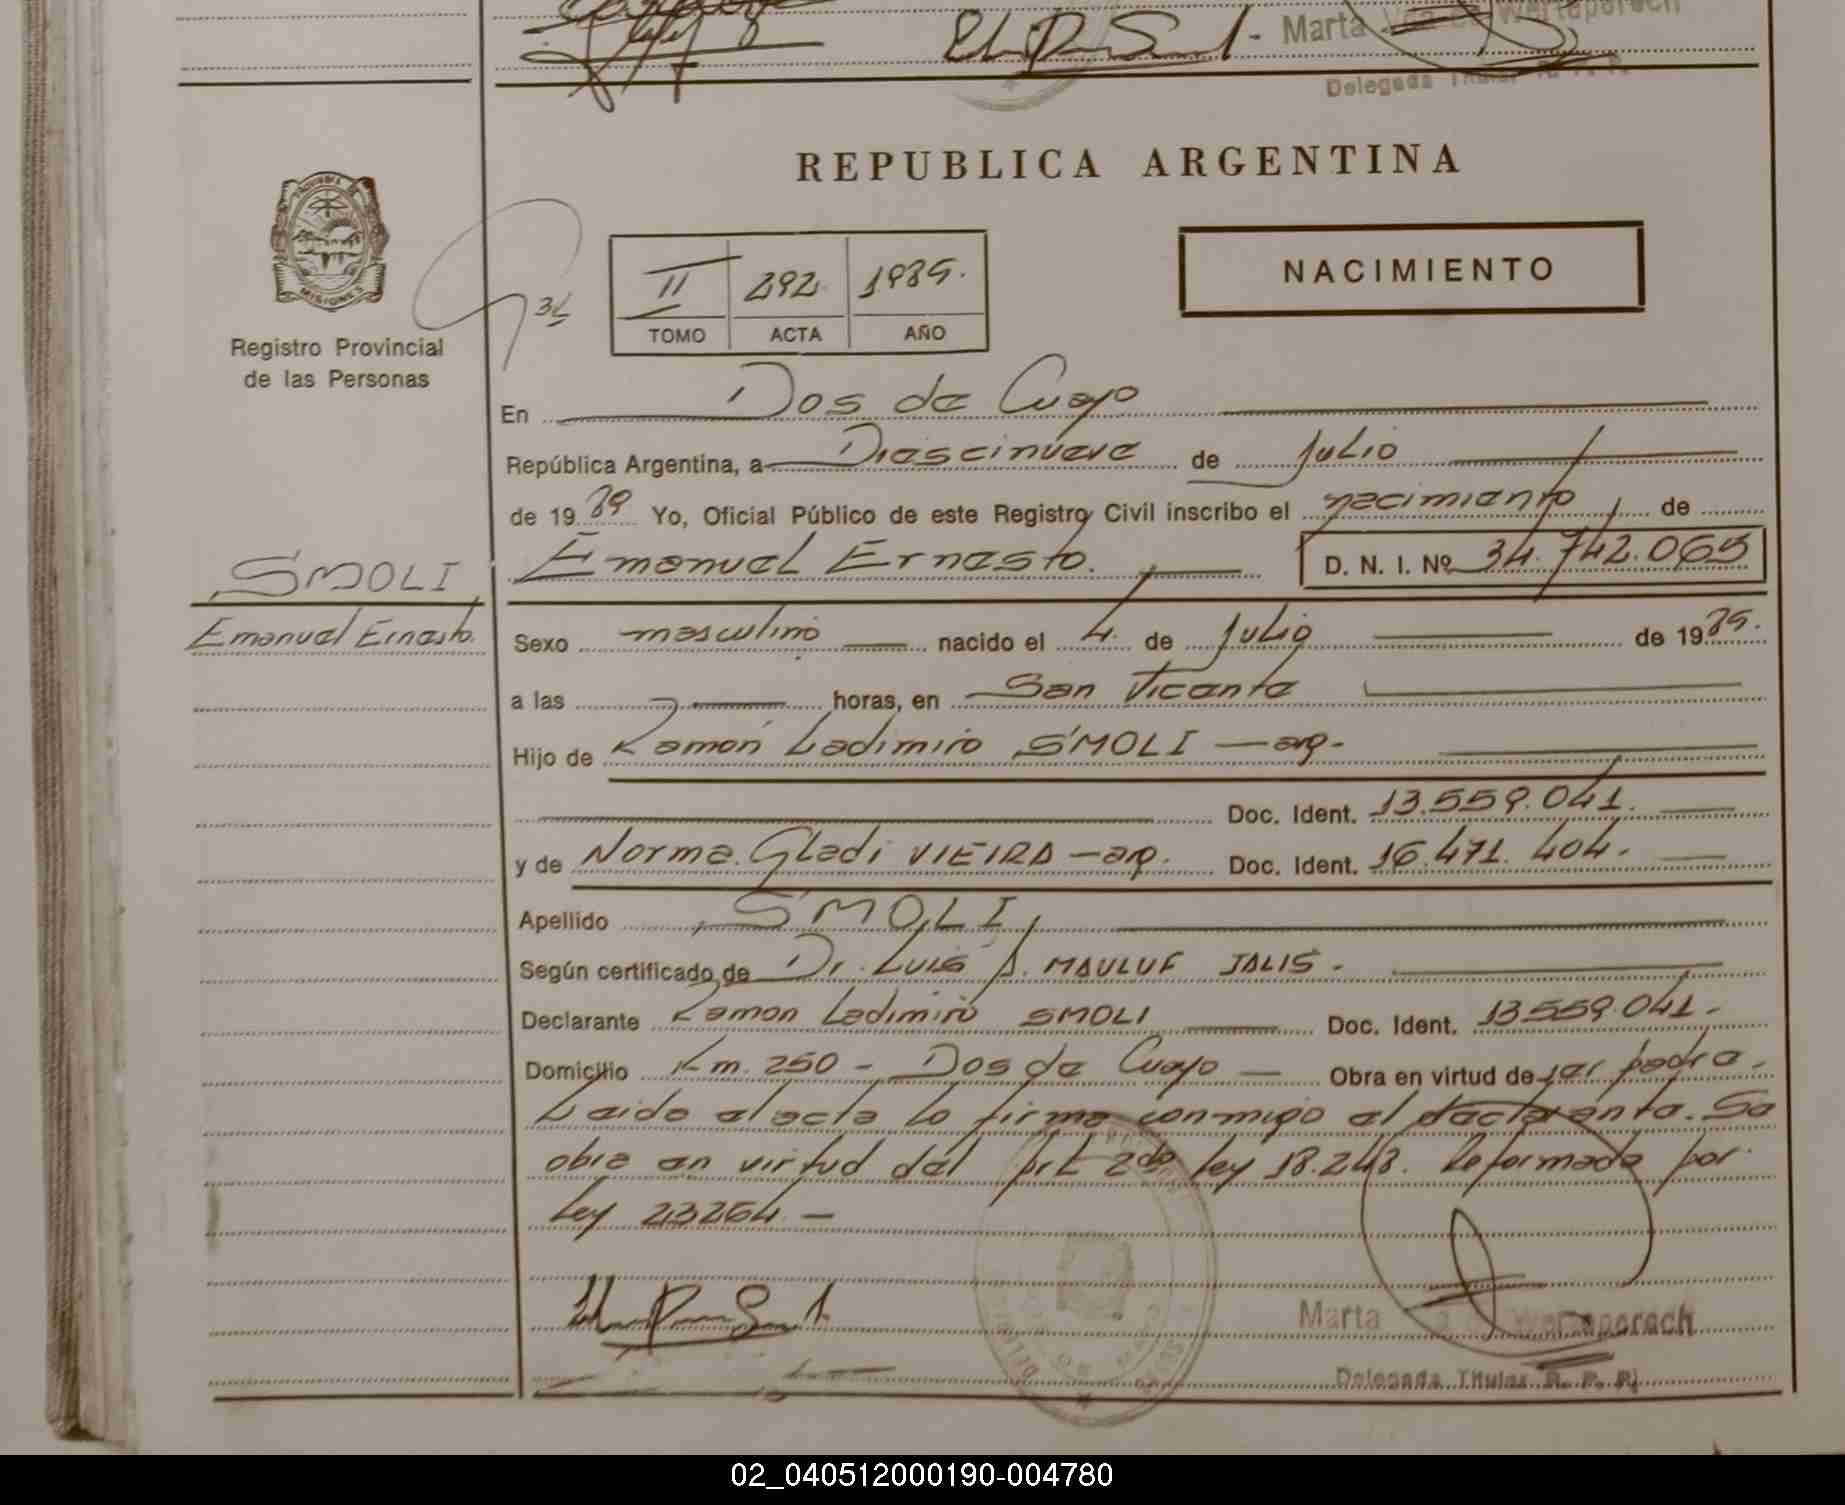 Marta Vda de Werteporach
Delegada Titular R. P. P.
REPUBLICA ARGENTINA
PROVINCIA DE
MISIONES
Registro Provincial
de las Personas
34
II 292 1989.
TOMO ACTA AÑO
NACIMIENTO
En Dos de Mayo
República Argentina, a Diescinueve de Julio
de 1989 Yo, Oficial Público de este Registro Civil inscribo el nacimiento de
Emanuel Ernesto. D. N. I. Nº 34.742.065
SMOLI
Emanuel Ernesto.
Sexo masculino nacido el 4 de Julio de 1989.
a las horas, en San Vicente
Hijo de Ramón Ladimiro SMOLI — arg.
Doc. Ident. 13.559.041.
y de Norma Gladi VIEIRA — arg. Doc. Ident. 16.471.404.
Apellido SMOLI
Según certificado de Dr. Luis A. MAULUF JALIS.
Declarante Ramon Ladimiro SMOLI Doc. Ident. 13.559.041.
Domicilio Km. 250 - Dos de Mayo — Obra en virtud de ser padre.
Leida el acta la firma conmigo el declarante. Se
obra en virtud del Art 2do ley 18.248. Reformada por
Ley 23264. —
Marta Werteporach
Delegada Titular R. P. P.
02_040512000190-004780